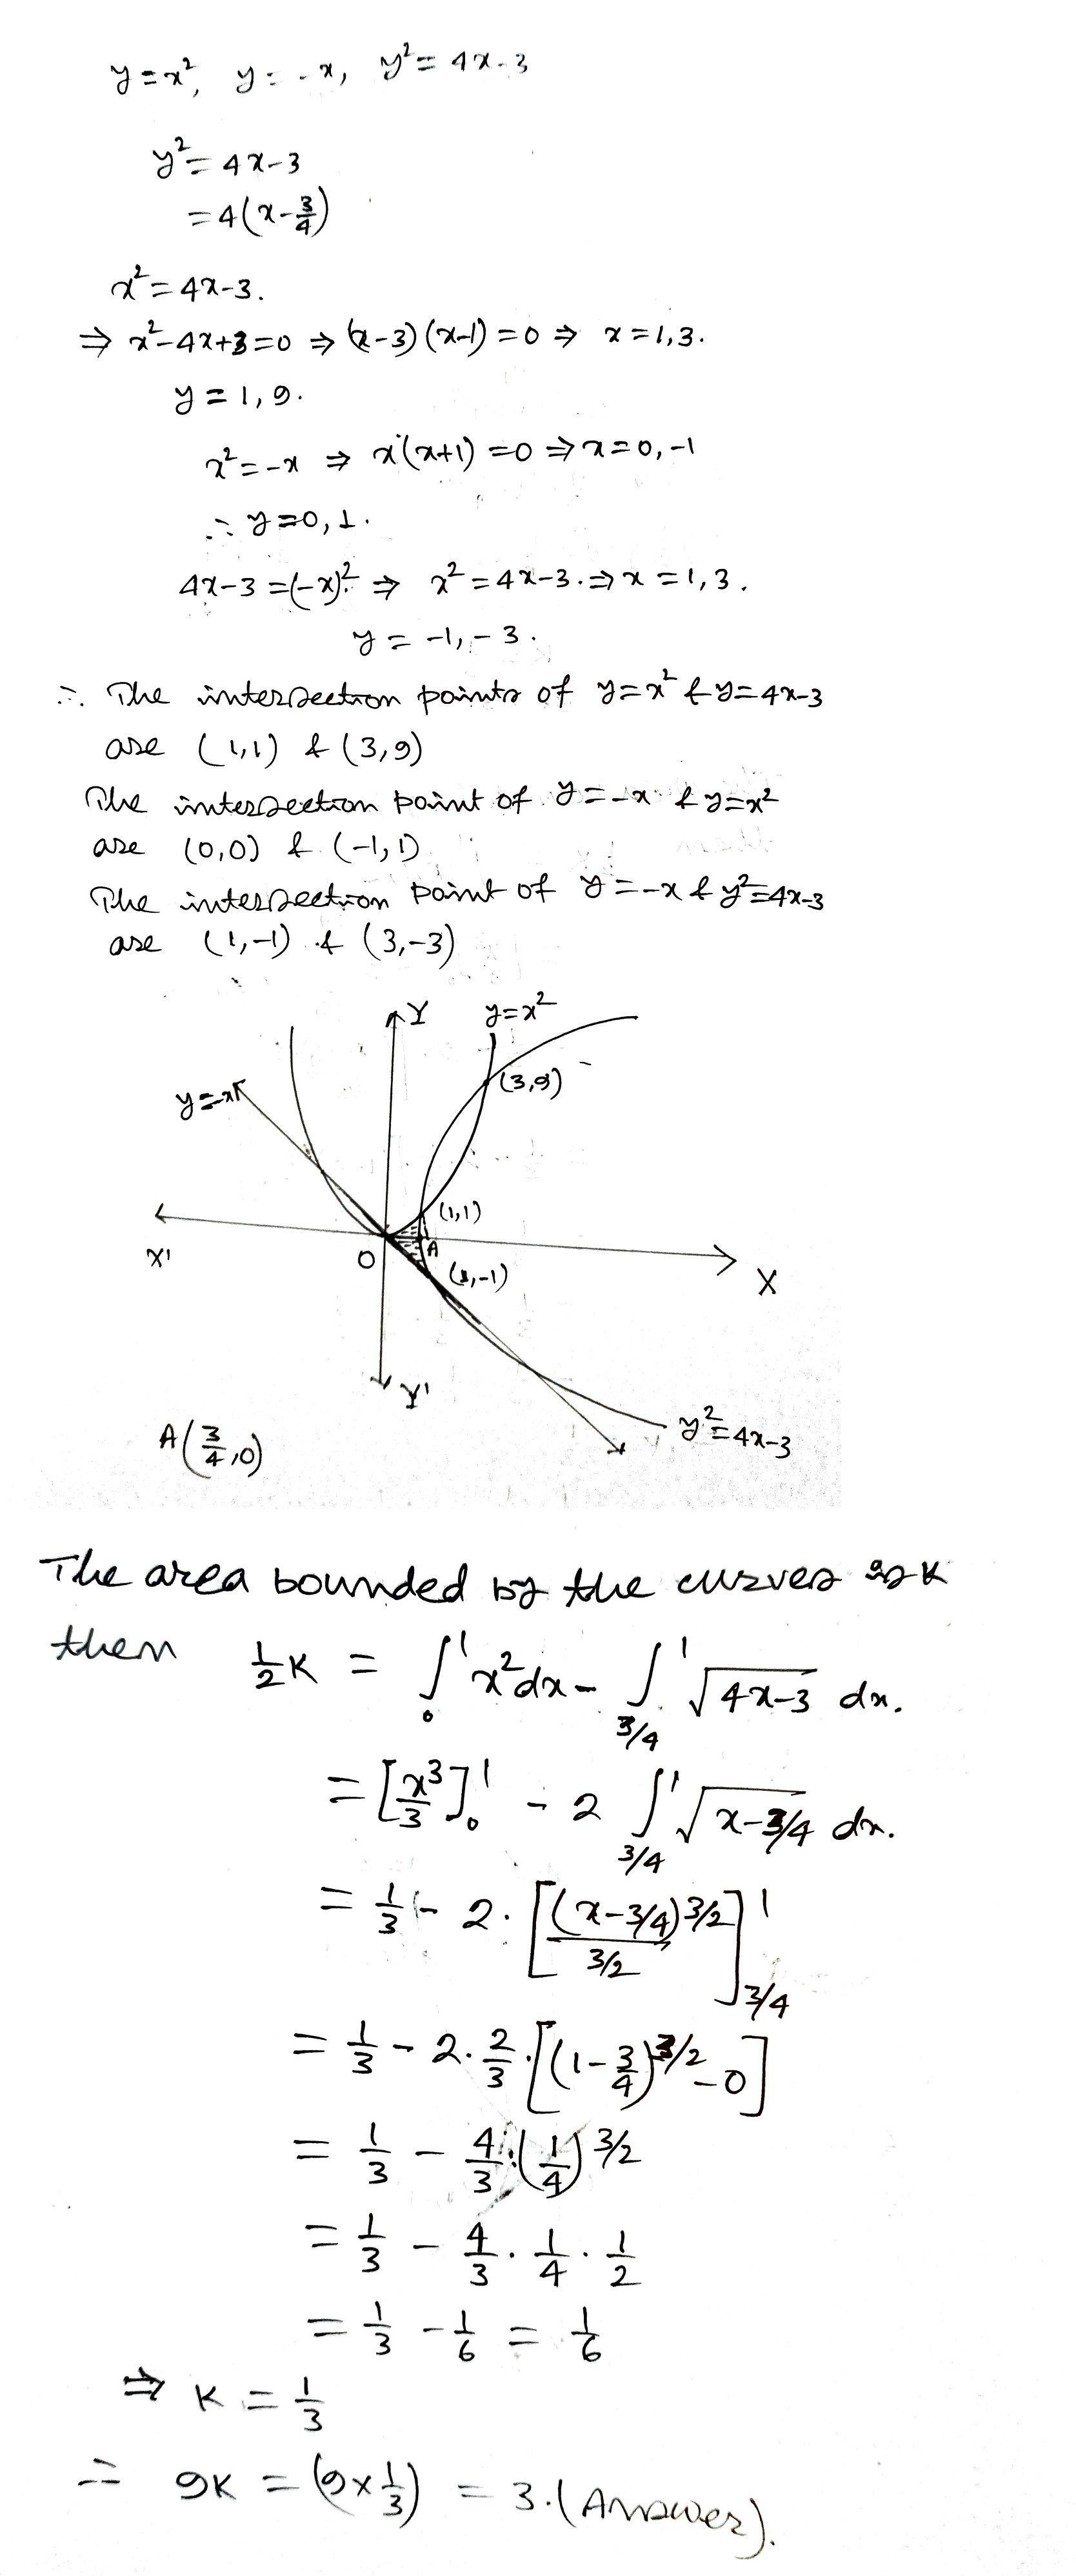 y = x², y = -x, y² = 4x-3
y² = 4x-3
= 4(x-3/4)
x² = 4x-3.
⇒ x²-4x+3=0 ⇒ (x-3)(x-1) = 0 ⇒ x = 1,3.
y = 1, 9.
x² = -x ⇒ x(x+1) = 0 ⇒ x = 0, -1
∴ y = 0, 1.
4x-3 = (-x)² ⇒ x² = 4x-3. ⇒ x = 1, 3.
y = -1, -3.
∴ The intersection points of y=x² & y=4x-3
are (1,1) & (3,9)
The intersection point of y=-x & y=x²
are (0,0) & (-1,1)
The intersection point of y=-x & y²=4x-3
are (1,-1) & (3,-3)
Y y=x²
(3,9)
y=-x
(1,1)
X' O A X
(1,-1)
Y'
y²=4x-3
A(3/4,0)
The area bounded by the curves is K
then 1/2 K = ∫₀¹ x²dx - ∫_{3/4}^1 √(4x-3) dx.
= [x³/3]₀¹ - 2 ∫_{3/4}^1 √(x-3/4) dx.
= 1/3 - 2. [(x-3/4)^{3/2} / (3/2)]_{3/4}^1
= 1/3 - 2. 2/3. [(1-3/4)^{3/2} - 0]
= 1/3 - 4/3. (1/4)^{3/2}
= 1/3 - 4/3 . 1/4 . 1/2
= 1/3 - 1/6 = 1/6
⇒ K = 1/3
∴ 9K = (9×1/3) = 3. (Answer).